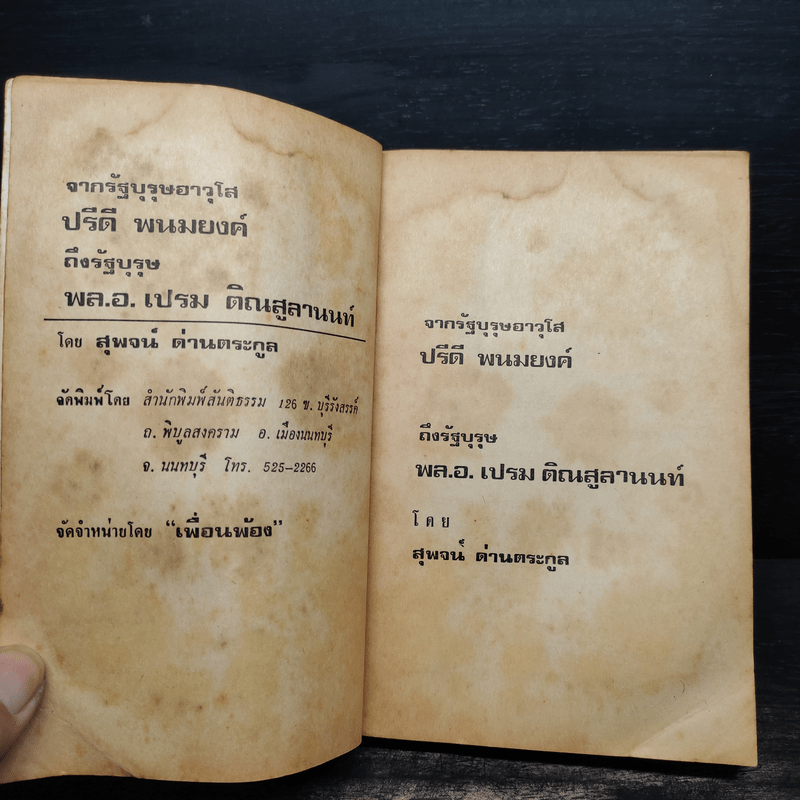 จากรัฐบุรุษอาวุโส
ปรีดี พนมยงค์
ถึงรัฐบุรุษ
พล.อ. เปรม ติณสูลานนท์
โดย สุพจน์ ด่านตระกูล
จัดพิมพ์โดย สำนักพิมพ์สันติธรรม 126 ซ. บุรีรังสรรค์
ถ. พิบูลสงคราม อ. เมืองนนทบุรี
จ. นนทบุรี โทร. 525-2266
จัดจำหน่ายโดย “เพื่อนพ้อง”
จากรัฐบุรุษอาวุโส
ปรีดี พนมยงค์
ถึงรัฐบุรุษ
พล.อ. เปรม ติณสูลานนท์
โดย
สุพจน์ ด่านตระกูล